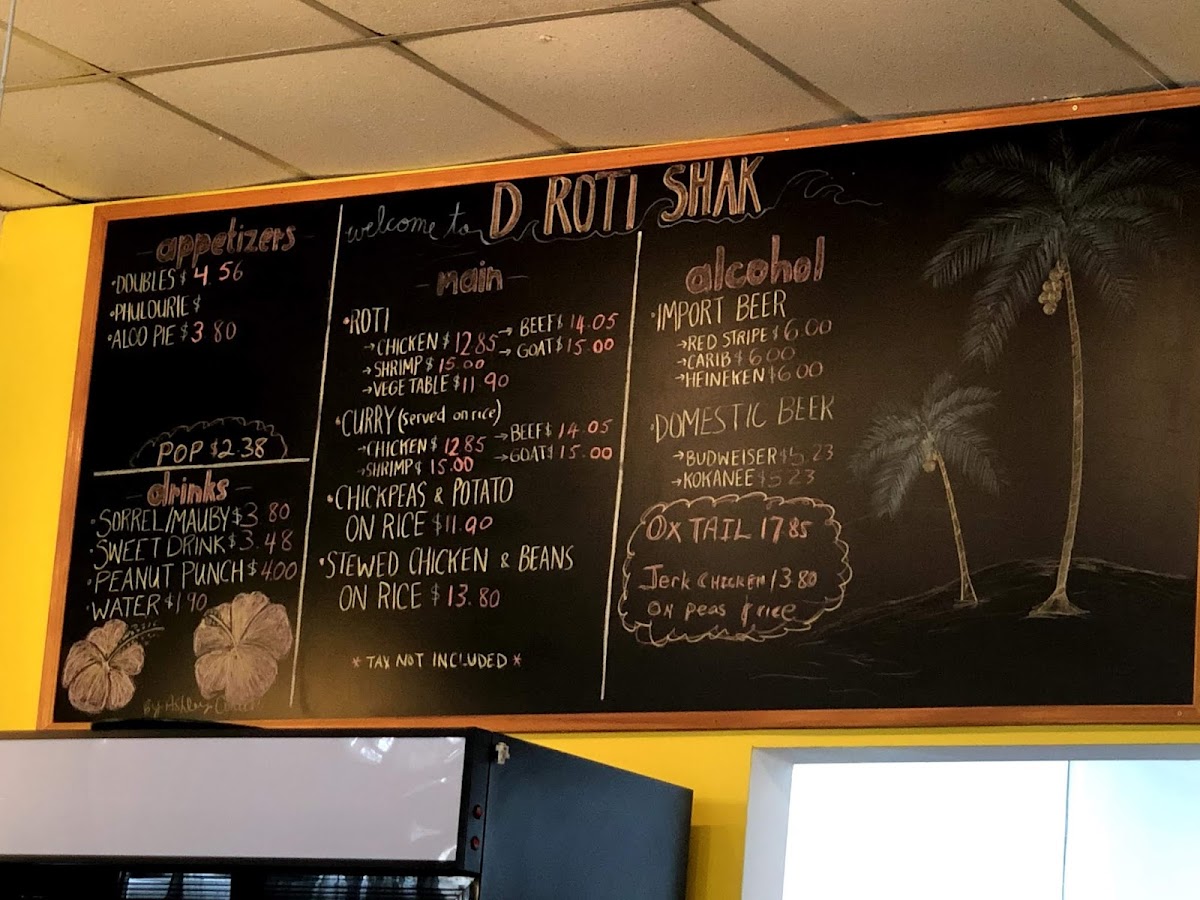 welcome to D ROTI SHAK
- appetizers -
• DOUBLES $ 4.56
• PHULOURIE $
• ALOO PIE $ 3 80
POP $2.38
- drinks -
• SORREL/MAUBY $3 80
• SWEET DRINK $3.48
• PEANUT PUNCH $ 400
• WATER $1 90
By Ashley
- main -
• ROTI
→ CHICKEN $ 12 85 → BEEF $ 14.05
→ SHRIMP $ 15.00 → GOAT $ 15.00
→ VEGETABLE $11.90
• CURRY (served on rice)
→ CHICKEN $ 12 85 → BEEF $ 14.05
→ SHRIMP $ 15.00 → GOAT $ 15.00
• CHICKPEAS & POTATO
ON RICE $11.90
• STEWED CHICKEN & BEANS
ON RICE $ 13.80
* TAX NOT INCLUDED *
alcohol
• IMPORT BEER
→ RED STRIPE $ 6.00
→ CARIB $ 6.00
→ HEINEKEN $6 00
• DOMESTIC BEER
→ BUDWEISER $5.23
→ KOKANEE $5 23
OX TAIL 17 85
Jerk CHICKEN 13.80
ON peas & rice